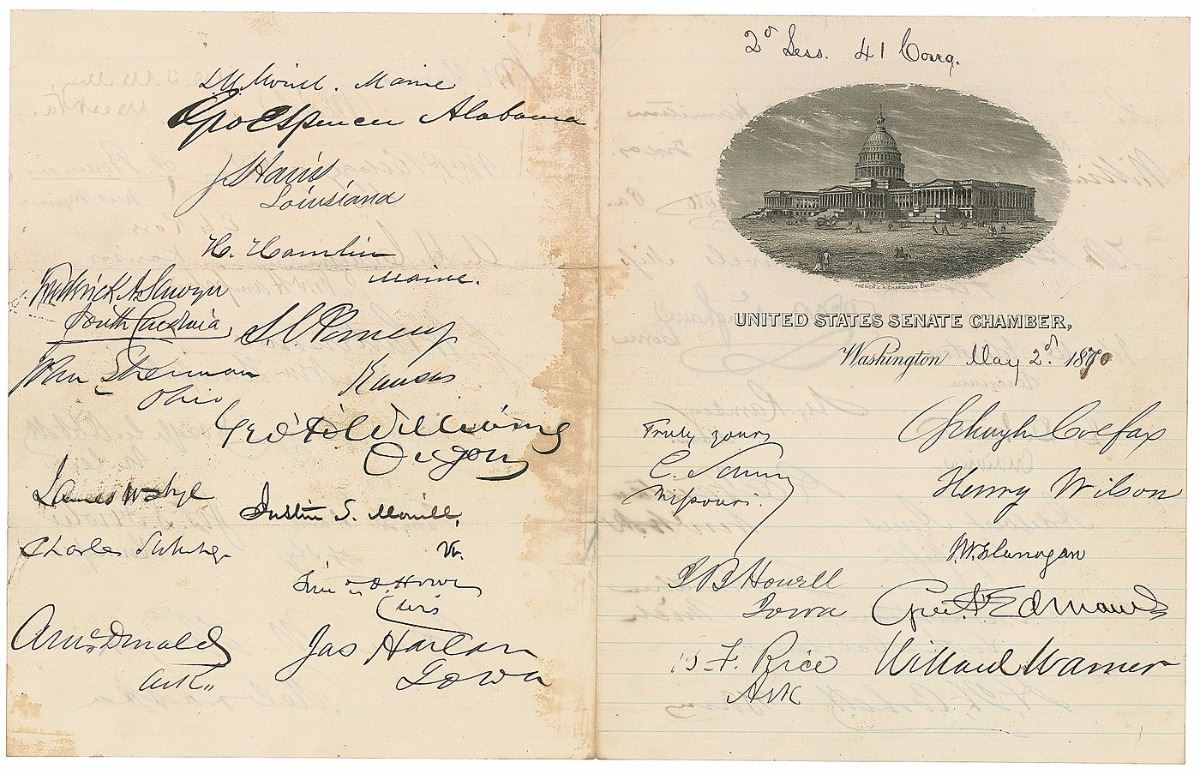 L. M. Morrill. Maine
Geo E Spencer Alabama
J S Harris
Louisiana
H. Hamlin
Maine.
Frederick A. Sawyer
South Carolina
S. C. Pomeroy
Kansas
John Sherman
Ohio
Geo H Williams
Oregon
James W Nye
Justin S. Morrill,
Vt.
Charles Sumner
Tim o. Howe
Wis
A McDonald
Ark.
Jas Harlan
Iowa
2d Sess. 41 Cong.
UNITED STATES SENATE CHAMBER,
Washington May 2d 1870
Truly yours
C. Schurz
Missouri.
Schuyler Colfax
Henry Wilson
J. W. Flanagan
J B Howell
Iowa
Geo. F. Edmunds
B. F. Rice
Ark
Willard Warner